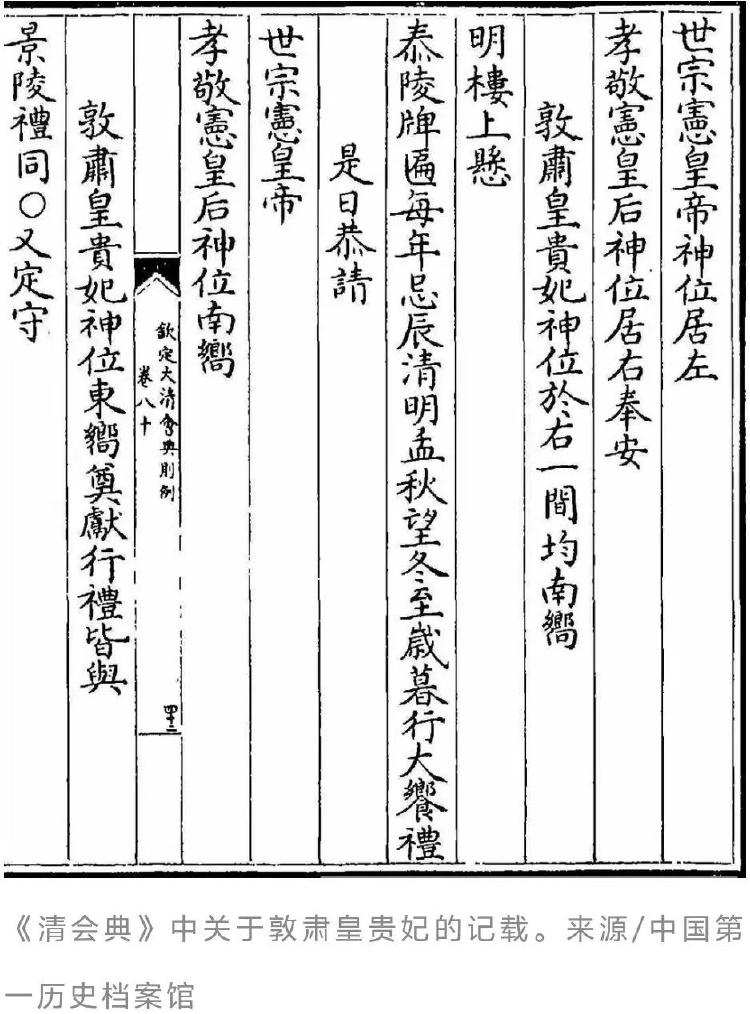 世宗憲皇帝神位居左
孝敬憲皇后神位居右奉安
敦肅皇貴妃神位於右一間均南嚮
明樓上懸
泰陵牌匾每年忌辰清明孟秋望冬至歲暮行大饗禮
是日恭請
世宗憲皇帝
孝敬憲皇后神位南嚮
欽定大清會典則例
卷八十
四十二
敦肅皇貴妃神位東嚮奠獻行禮皆與
景陵禮同○又定守
《清会典》中关于敦肃皇贵妃的记载。来源/中国第
一历史档案馆